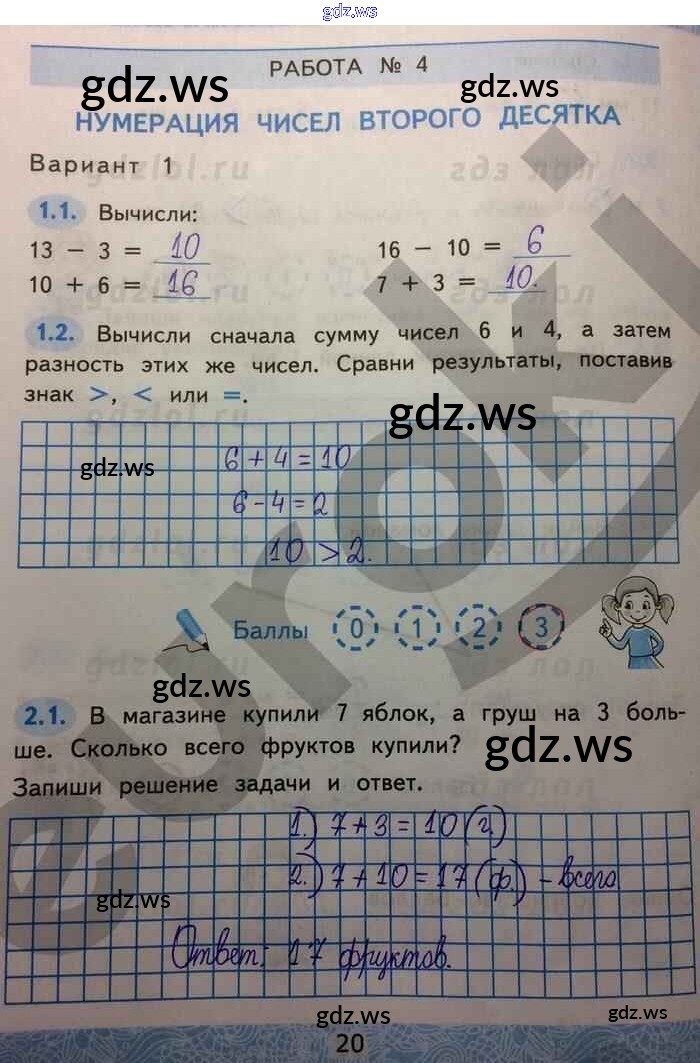 gdz.ws
РАБОТА № 4
gdz.ws
gdz.ws
НУМЕРАЦИЯ ЧИСЕЛ ВТОРОГО ДЕСЯТКА
Вариант 1
1.1. Вычисли:
13 − 3 = 10
16 − 10 = 6
10 + 6 = 16
7 + 3 = 10.
1.2. Вычисли сначала сумму чисел 6 и 4, а затем
разность этих же чисел. Сравни результаты, поставив
знак >, < или =.
gdz.ws
6 + 4 = 10
gdz.ws
6 - 4 = 2
10 > 2.
Баллы 0 1 2 3
gdz.ws
2.1. В магазине купили 7 яблок, а груш на 3 боль-
ше. Сколько всего фруктов купили?
gdz.ws
Запиши решение задачи и ответ.
1.) 7 + 3 = 10 (г.)
2.) 7 + 10 = 17 (ф.) - всего
gdz.ws
Ответ: 17 фруктов.
gdz.ws
gdz.ws
20
euroki